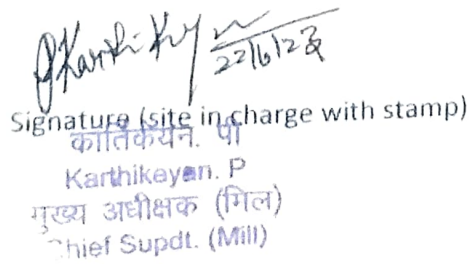 PKarthiKeyan
22/6/23
Signature (site in charge with stamp)
कार्तिकेयन. पी
Karthikeyan. P
मुख्य अधीक्षक (मिल)
Chief Supdt. (Mill)